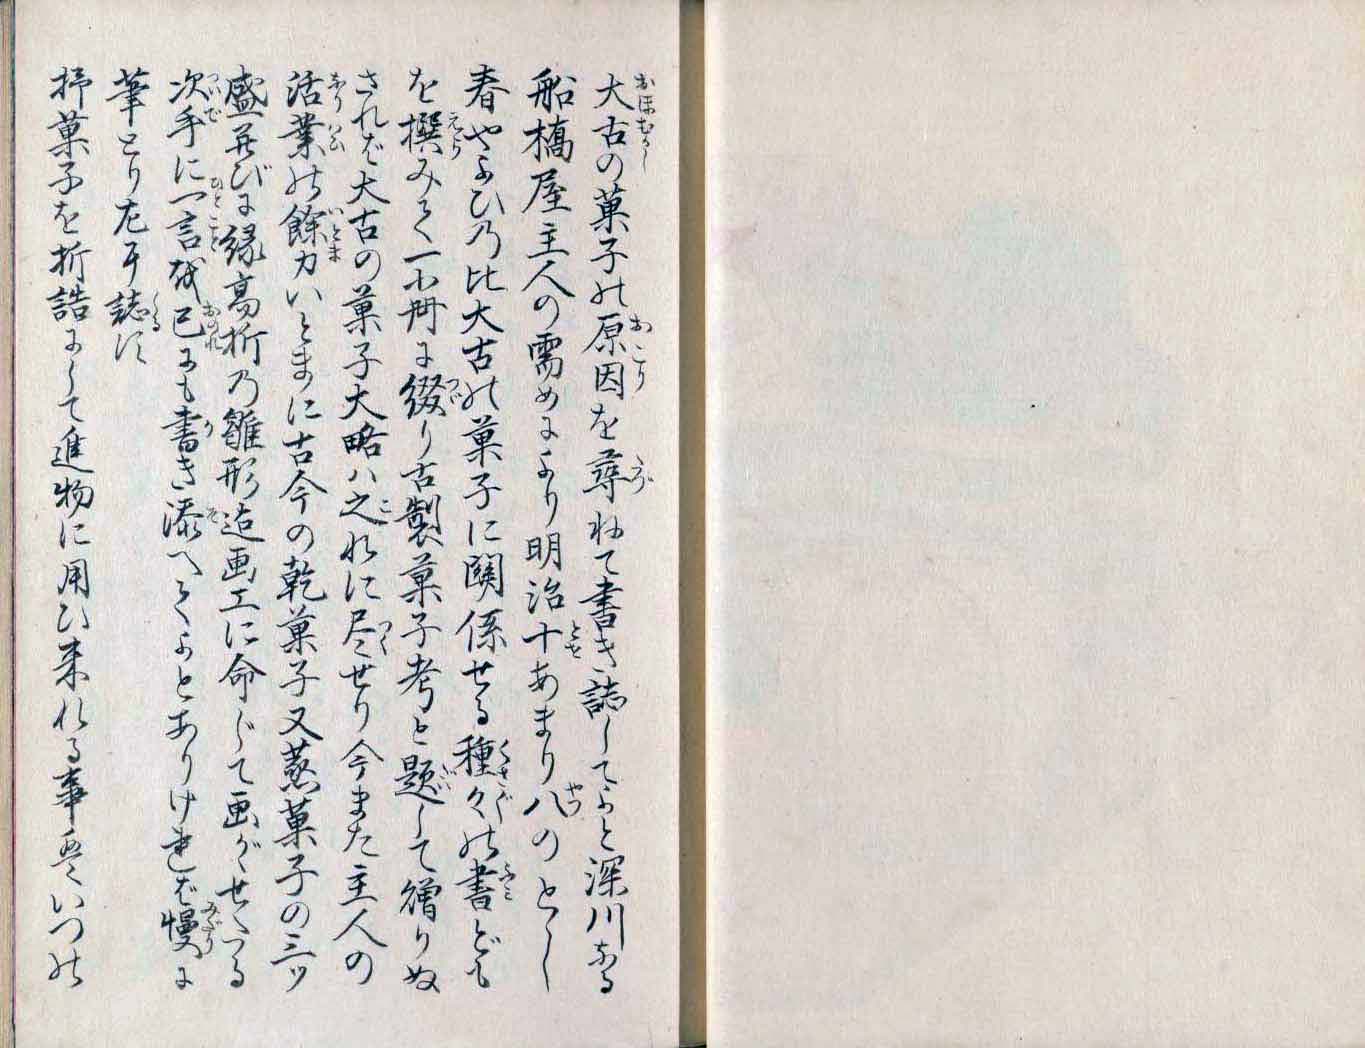 大古の菓子の原因を尋ねて書き誌してよと深川なる
船橋屋主人の需めにより明治十あまり八のとし
春やよひの比大古の菓子に関係せる種々の書ども
を撰みて一小冊に綴り古製菓子考と題して贈りぬ
されば大古の菓子大略ハ之れに尽せり今また主人の
活業の餘力いとまに古今の乾菓子又蒸菓子の三ツ
盛并びに縁高折の雛形造画工に命じて画がせたる
次手に一言を已にも書き添へてよとありければ慢に
筆とり左に誌す
抑菓子を折詰にして進物に用ひ来れる事ハいつの